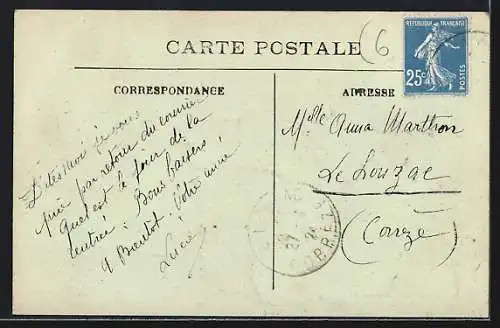 (6
RÉPUBLIQUE FRANÇAISE
25c
POSTES
CARTE POSTALE
CORRESPONDANCE
ADRESSE
Dites-moi je vous
prie par retour du courrier
quel est le jour de la
rentrée. Bons baisers
A Bientôt! Votre amie
Lucie
Mlle Anna Marthon
Le Lonzac
(Corrèze)
CORREZE